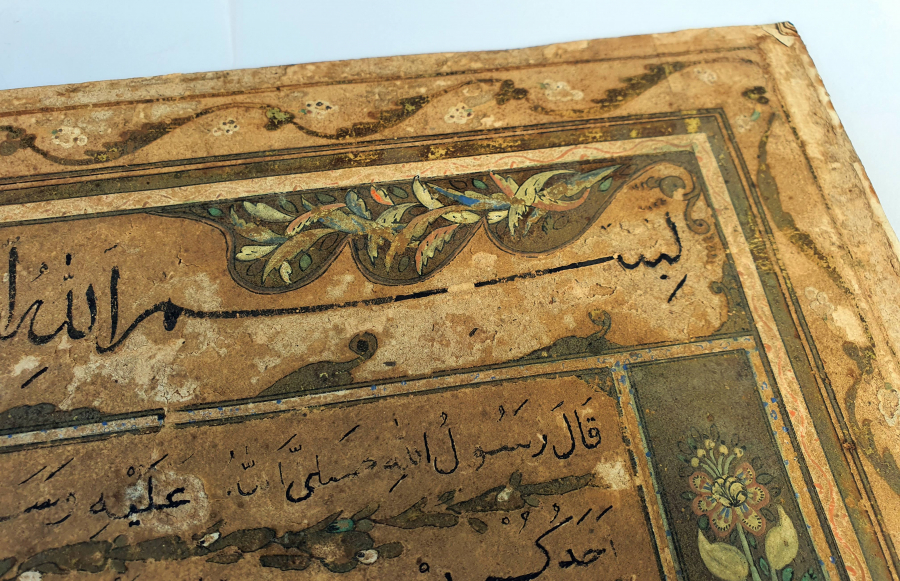 بِسم اللهِ
قَالَ رَسُولُ اللهِ صَلَّى اللهُ عَلَيْهِ